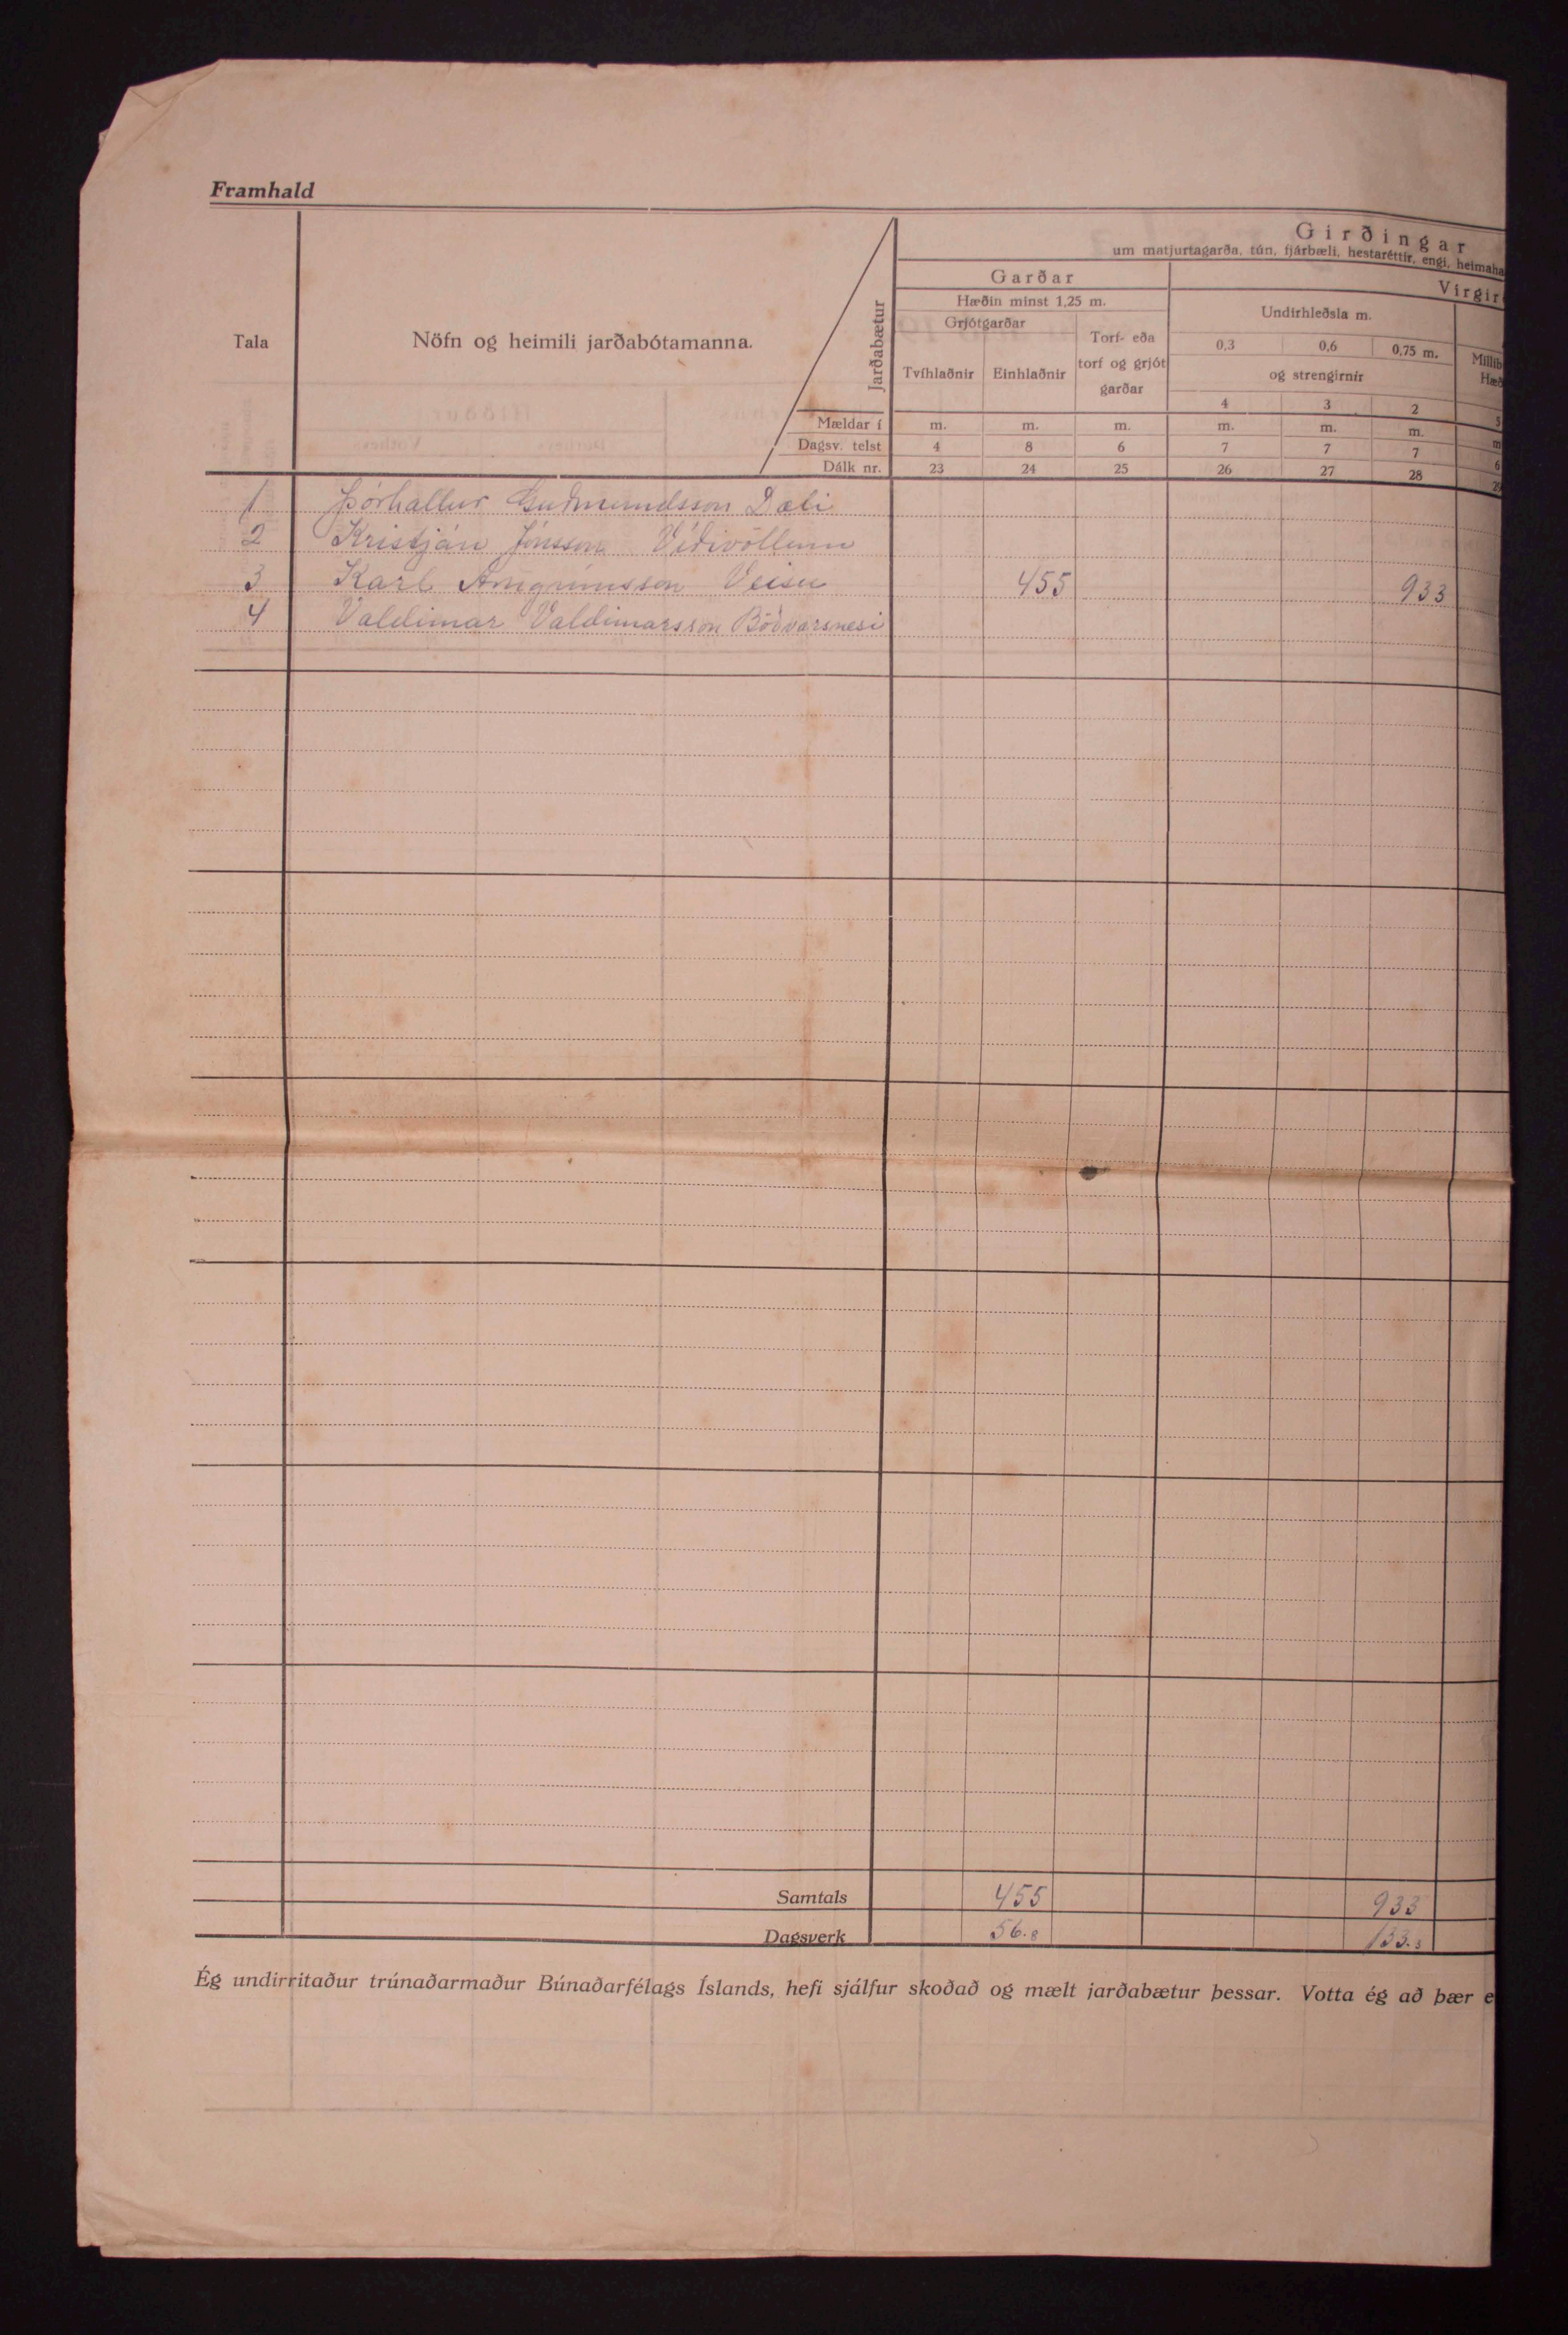 Framhald
Girðingar
um matjurtagarða, tún, fjárbæli, hestaréttir, engi, heimaha
Garðar
Vírgir
Hæðin minst 1,25 m.
Undirhleðsla m.
Grjótgarðar
Torf- eða torf og grjót garðar
0,3 0,6 0,75 m.
Tala
Nöfn og heimili jarðabótamanna.
Jarðabætur
Tvíhlaðnir Einhlaðnir
og strengirnir
Millib
Hæð
4 3 2 5
Mældar í m. m. m. m. m. m. m
Dagsv. telst 4 8 6 7 7 7 6
Dálk nr. 23 24 25 26 27 28 29
1 Þórhallur Guðmundsson Dæli
2 Kristján Jónsson Víðivöllum
3 Karl Arngrímsson Veisu 455 933
4 Valdimar Valdimarsson Böðvarsnesi
Samtals 455 933
Dagsverk 56.8 133.3
Ég undirritaður trúnaðarmaður Búnaðarfélags Íslands, hefi sjálfur skoðað og mælt jarðabætur þessar. Votta ég að þær e